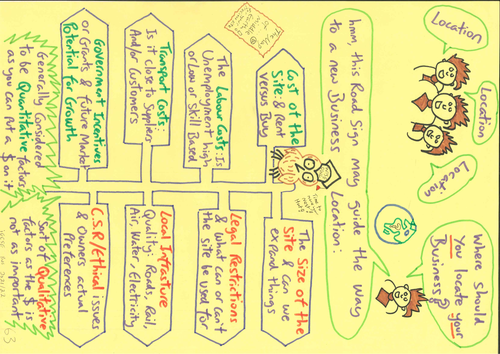 Location
Location
Location
Where should
You locate
Your
Business?
hmm, this Road Sign may guide the way
to a new Business Location:
Cost of the
Site: & Rent
versus Buy
The Size of the
site & can we
expand things
The Labour Costs: Is
Unemployment high
or Low or Skill Based
Legal Restrictions
& what can or can't
the site be used for
Transport Costs:
Is it close to Suppliers
And/or Customers
Local Infrasture
Quality: Roads, Rail,
Air, Water, Electricity
Government Incentives
or Grants & future Market
Potential for Growth
C.S.R/Ethical issues
& Owners actual
Preferences
Generally Considered
to be Quantitative factors
as you can put a $ on it
Sort of Qualitative
factors as the $ is
not as important
63